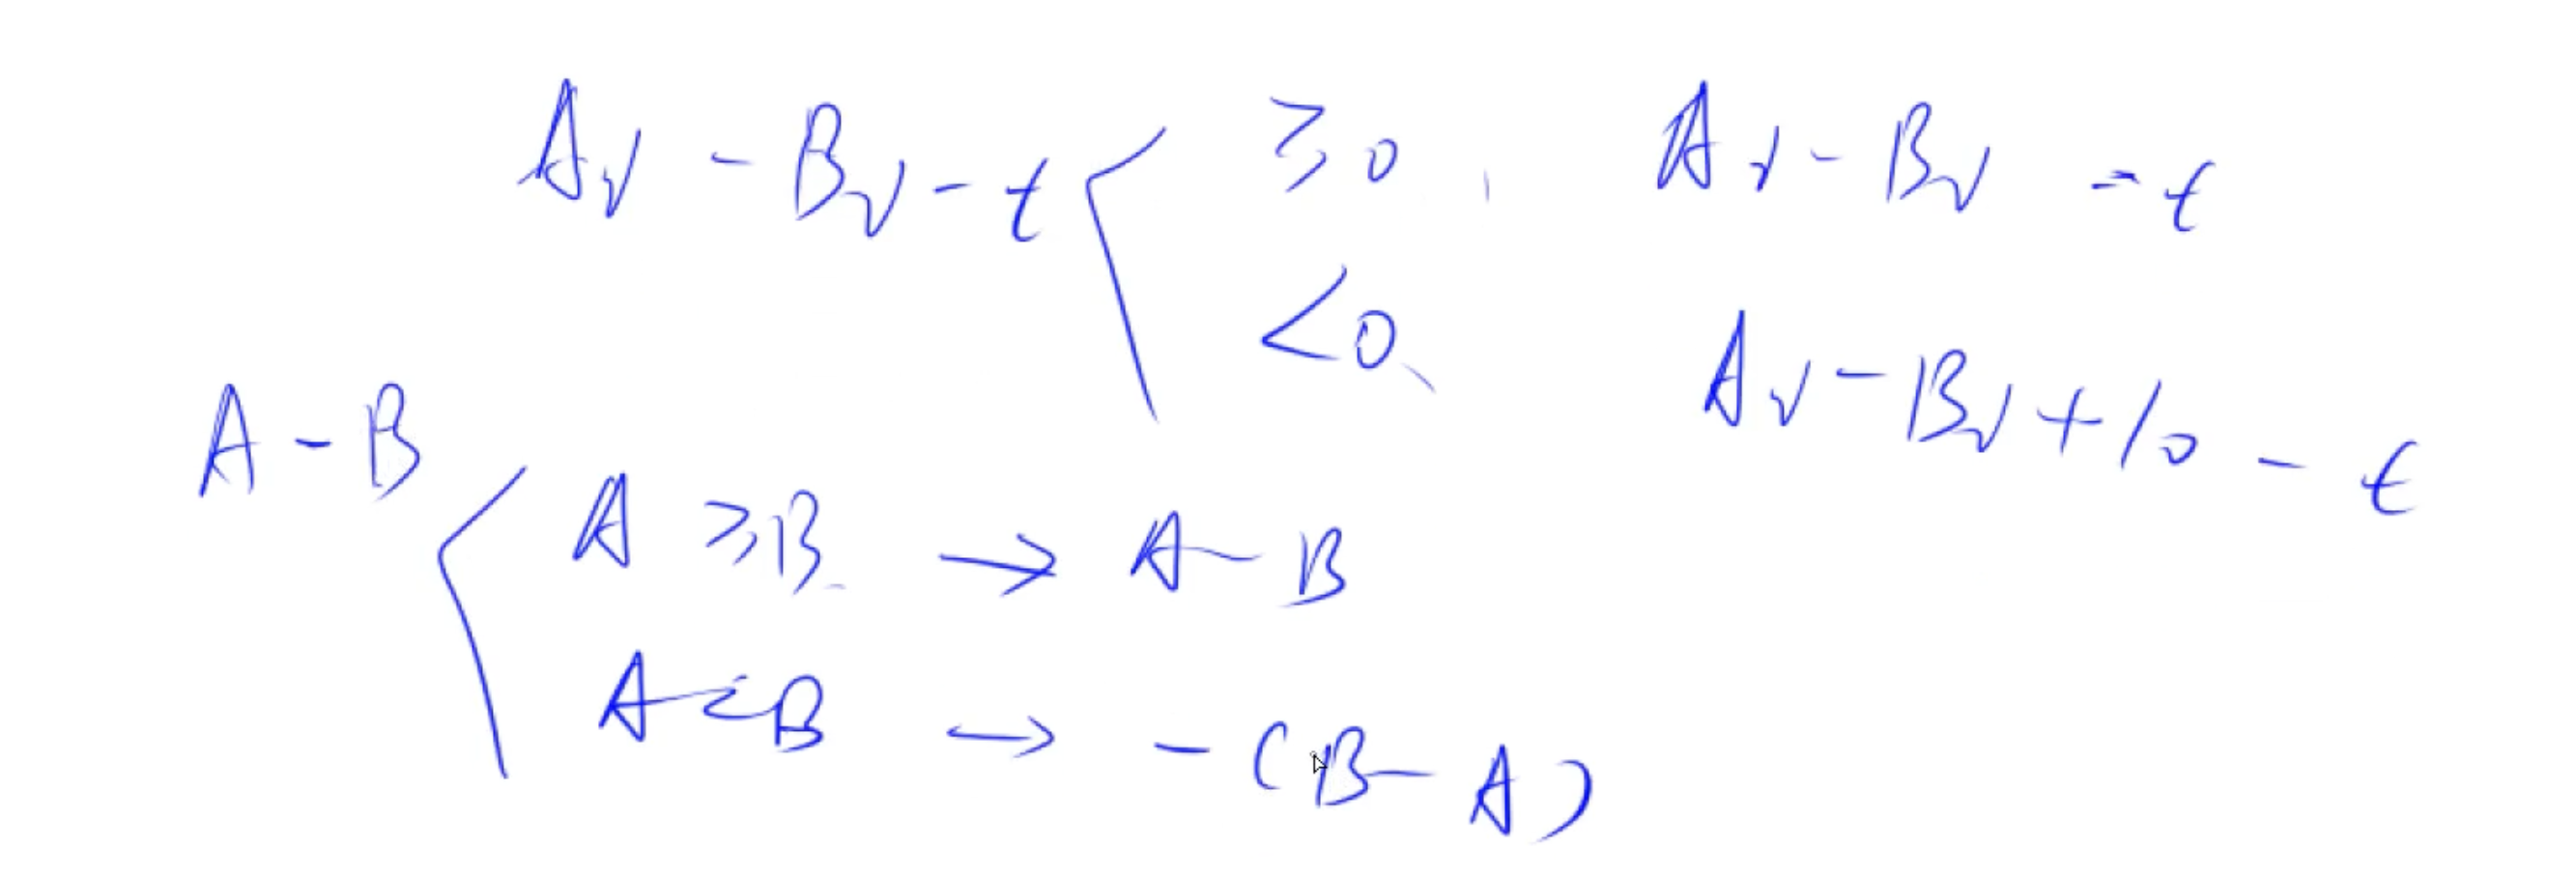 Av - Bv - t < ≥0, Av - Bv = t
<0, Av - Bv + 10 - t
A - B
A ≥ B → A - B
A < B → -(B - A)